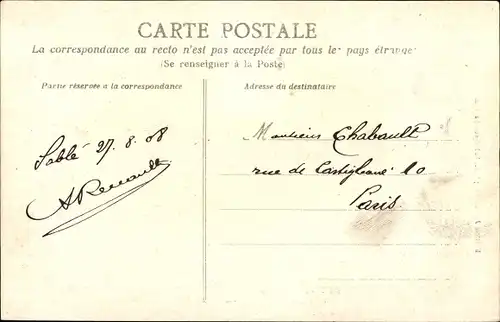 CARTE POSTALE
La correspondance au recto n'est pas acceptée par tous les pays étrange
(Se renseigner à la Poste)
Partie réservée a la correspondance
Adresse du destinataire
Sablé 27. 8. 08
A Renault
Monsieur Chabault
rue de Castiglione 10
Paris